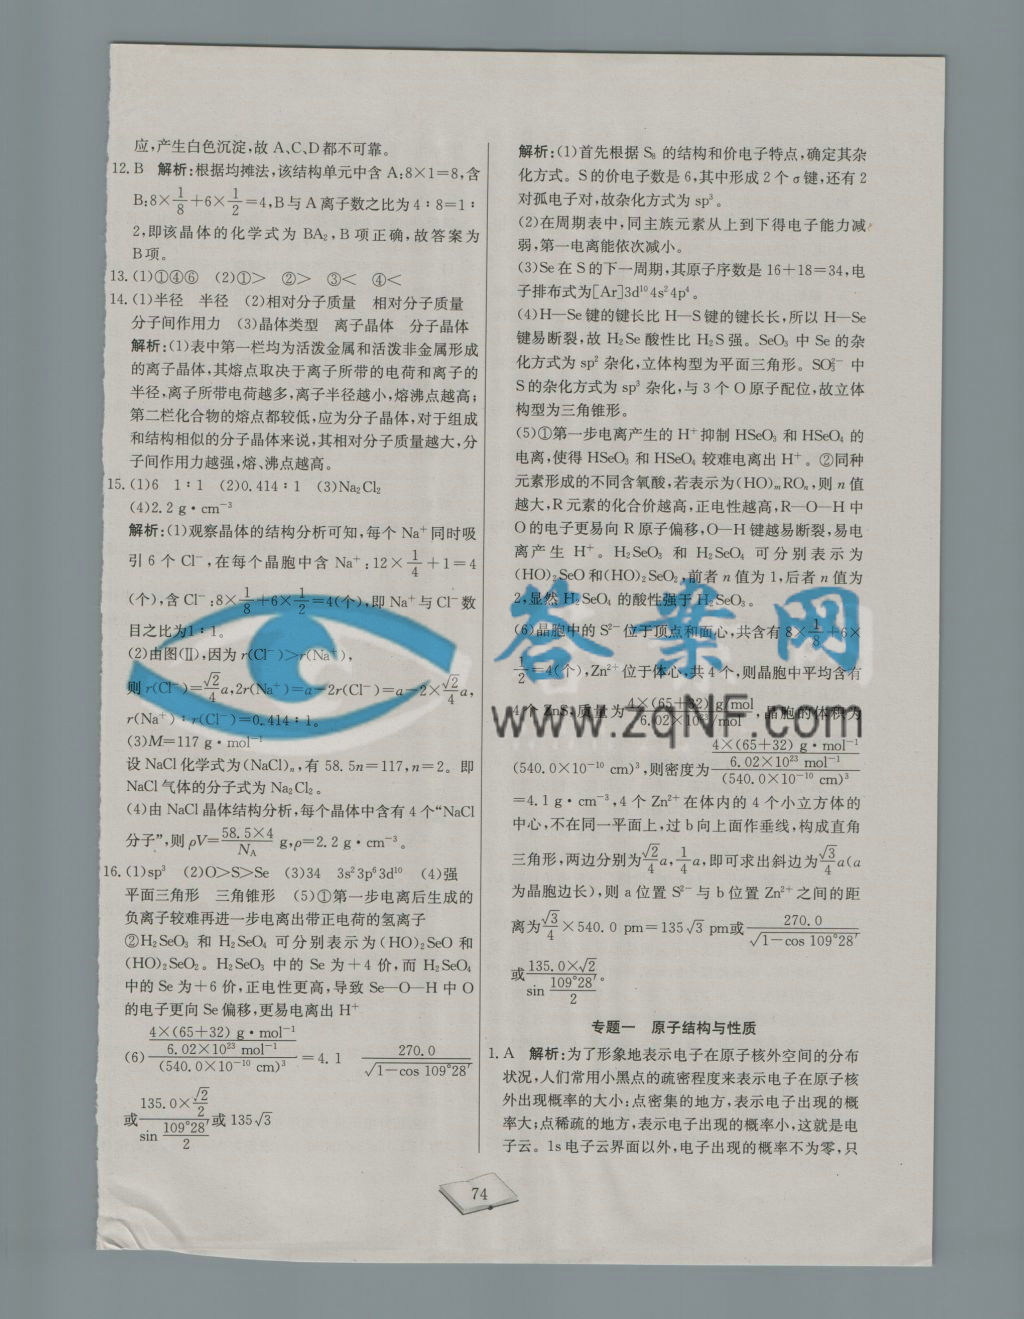 应,产生白色沉淀,故 A、C、D 都不可靠。
12. B 解析:根据均摊法,该结构单元中含 A:8×1=8,含
B:8×1/8+6×1/2=4,B 与 A 离子数之比为 4∶8=1∶
2,即该晶体的化学式为 BA₂,B 项正确,故答案为
B 项。
13. (1)①④⑥ (2)①> ②> ③< ④<
14. (1)半径 半径 (2)相对分子质量 相对分子质量
分子间作用力 (3)晶体类型 离子晶体 分子晶体
解析:(1)表中第一栏均为活泼金属和活泼非金属形成
的离子晶体,其熔点取决于离子所带的电荷和离子的
半径,离子所带电荷越多,离子半径越小,熔沸点越高;
第二栏化合物的熔点都较低,应为分子晶体,对于组成
和结构相似的分子晶体来说,其相对分子质量越大,分
子间作用力越强,熔、沸点越高。
15. (1)6 1∶1 (2)0.414∶1 (3)Na₂Cl₂
(4)2.2 g·cm⁻³
解析:(1)观察晶体的结构分析可知,每个 Na⁺ 同时吸
引 6 个 Cl⁻,在每个晶胞中含 Na⁺:12×1/4+1=4
(个),含 Cl⁻:8×1/8+6×1/2=4(个),即 Na⁺ 与 Cl⁻ 数
目之比为1∶1。
(2)由图(Ⅱ),因为 r(Cl⁻)>r(Na⁺),
则 r(Cl⁻)=√2/4 a,2r(Na⁺)=a-2r(Cl⁻)=a-2×√2/4 a,
r(Na⁺)∶r(Cl⁻)=0.414∶1。
(3)M=117 g·mol⁻¹
设 NaCl 化学式为(NaCl)ₙ,有 58.5n=117,n=2。即
NaCl 气体的分子式为 Na₂Cl₂。
(4)由 NaCl 晶体结构分析,每个晶体中含有 4 个“NaCl
分子”,则 ρV=58.5×4/N_A g,ρ=2.2 g·cm⁻³。
16. (1)sp³ (2)O>S>Se (3)34 3s²3p⁶3d¹⁰ (4)强
平面三角形 三角锥形 (5)①第一步电离后生成的
负离子较难再进一步电离出带正电荷的氢离子
②H₂SeO₃ 和 H₂SeO₄ 可分别表示为(HO)₂SeO 和
(HO)₂SeO₂。H₂SeO₃ 中的 Se 为+4 价,而 H₂SeO₄
中的 Se 为+6 价,正电性更高,导致 Se—O—H 中 O
的电子更向 Se 偏移,更易电离出 H⁺
(6) (4×(65+32) g·mol⁻¹/6.02×10²³ mol⁻¹)/(540.0×10⁻¹⁰ cm)³=4.1 270.0/√(1-cos 109°28′)
或 (135.0×√2/2)/(sin 109°28′/2) 或 135√3
解析:(1)首先根据 S₈ 的结构和价电子特点,确定其杂
化方式。S 的价电子数是 6,其中形成 2 个 σ 键,还有 2
对孤电子对,故杂化方式为 sp³。
(2)在周期表中,同主族元素从上到下得电子能力减
弱,第一电离能依次减小。
(3)Se 在 S 的下一周期,其原子序数是 16+18=34,电
子排布式为[Ar]3d¹⁰4s²4p⁴。
(4)H—Se 键的键长比 H—S 键的键长长,所以 H—Se
键易断裂,故 H₂Se 酸性比 H₂S 强。SeO₃ 中 Se 的杂
化方式为 sp² 杂化,立体构型为平面三角形。SO₃²⁻ 中
S 的杂化方式为 sp³ 杂化,与 3 个 O 原子配位,故立体
构型为三角锥形。
(5)①第一步电离产生的 H⁺ 抑制 HSeO₃ 和 HSeO₄ 的
电离,使得 HSeO₃ 和 HSeO₄ 较难电离出 H⁺。②同种
元素形成的不同含氧酸,若表示为(HO)ₘROₙ,则 n 值
越大,R 元素的化合价越高,正电性越高,R—O—H 中
O 的电子更易向 R 原子偏移,O—H 键越易断裂,易电
离产生 H⁺。H₂SeO₃ 和 H₂SeO₄ 可分别表示为
(HO)₂SeO 和(HO)₂SeO₂,前者 n 值为 1,后者 n 值为
2,显然 H₂SeO₄ 的酸性强于 H₂SeO₃。
(6)晶胞中的 S²⁻ 位于顶点和面心,共含有 8×1/8+6×
1/2=4(个),Zn²⁺ 位于体心,共 4 个,则晶胞中平均含有
4 个 ZnS,质量为 4×(65+32) g/mol/6.02×10²³/mol,晶胞的体积为
(540.0×10⁻¹⁰ cm)³,则密度为 (4×(65+32) g·mol⁻¹/6.02×10²³ mol⁻¹)/(540.0×10⁻¹⁰ cm)³
=4.1 g·cm⁻³,4 个 Zn²⁺ 在体内的 4 个小立方体的
中心,不在同一平面上,过 b 向上面作垂线,构成直角
三角形,两边分别为√2/4 a,1/4 a,即可求出斜边为√3/4 a(a
为晶胞边长),则 a 位置 S²⁻ 与 b 位置 Zn²⁺ 之间的距
离为√3/4×540.0 pm=135√3 pm或 270.0/√(1-cos 109°28′)
或 (135.0×√2)/(sin 109°28′/2)。
专题一 原子结构与性质
1. A 解析:为了形象地表示电子在原子核外空间的分布
状况,人们常用小黑点的疏密程度来表示电子在原子核
外出现概率的大小:点密集的地方,表示电子出现的概
率大;点稀疏的地方,表示电子出现的概率小,这就是电
子云。1s 电子云界面以外,电子出现的概率不为零,只
74
答案网
www.zqNF.com